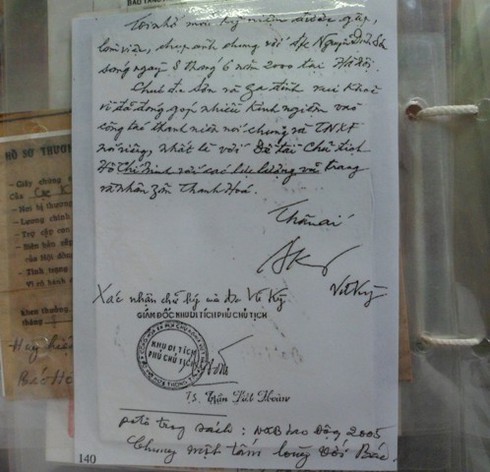 Tôi nhớ mãi kỷ niệm được gặp,
làm việc, chụp ảnh chung với đ/c Nguyễn Đình
sáng ngày 8 tháng 6 năm 2000 tại Hà Nội.
Chúc đ/c và gia đình mạnh khoẻ
vì đã đóng góp nhiều kinh nghiệm vào
công tác thanh niên nói chung và TNXP
nói riêng, nhất là với Đề tài Chủ tịch
Hồ Chí Minh với các lực lượng vũ trang
và nhân dân Thanh Hoá.
Thân ái
Vũ Kỳ
Xác nhận chữ ký của đ/c Vũ Kỳ
GIÁM ĐỐC KHU DI TÍCH PHỦ CHỦ TỊCH
KHU DI TÍCH
PHỦ CHỦ TỊCH
T.S. Trần Viết Hoàn
sách: NXB Lao Động 2005
Chung một tấm lòng với Bác
140
HỒ SƠ THƯƠNG
- Giấy chứng
Của
- Nơi bị thương
- Lương chính
- Trợ cấp
- Biên bản
của Hội đồng
- Tình trạng